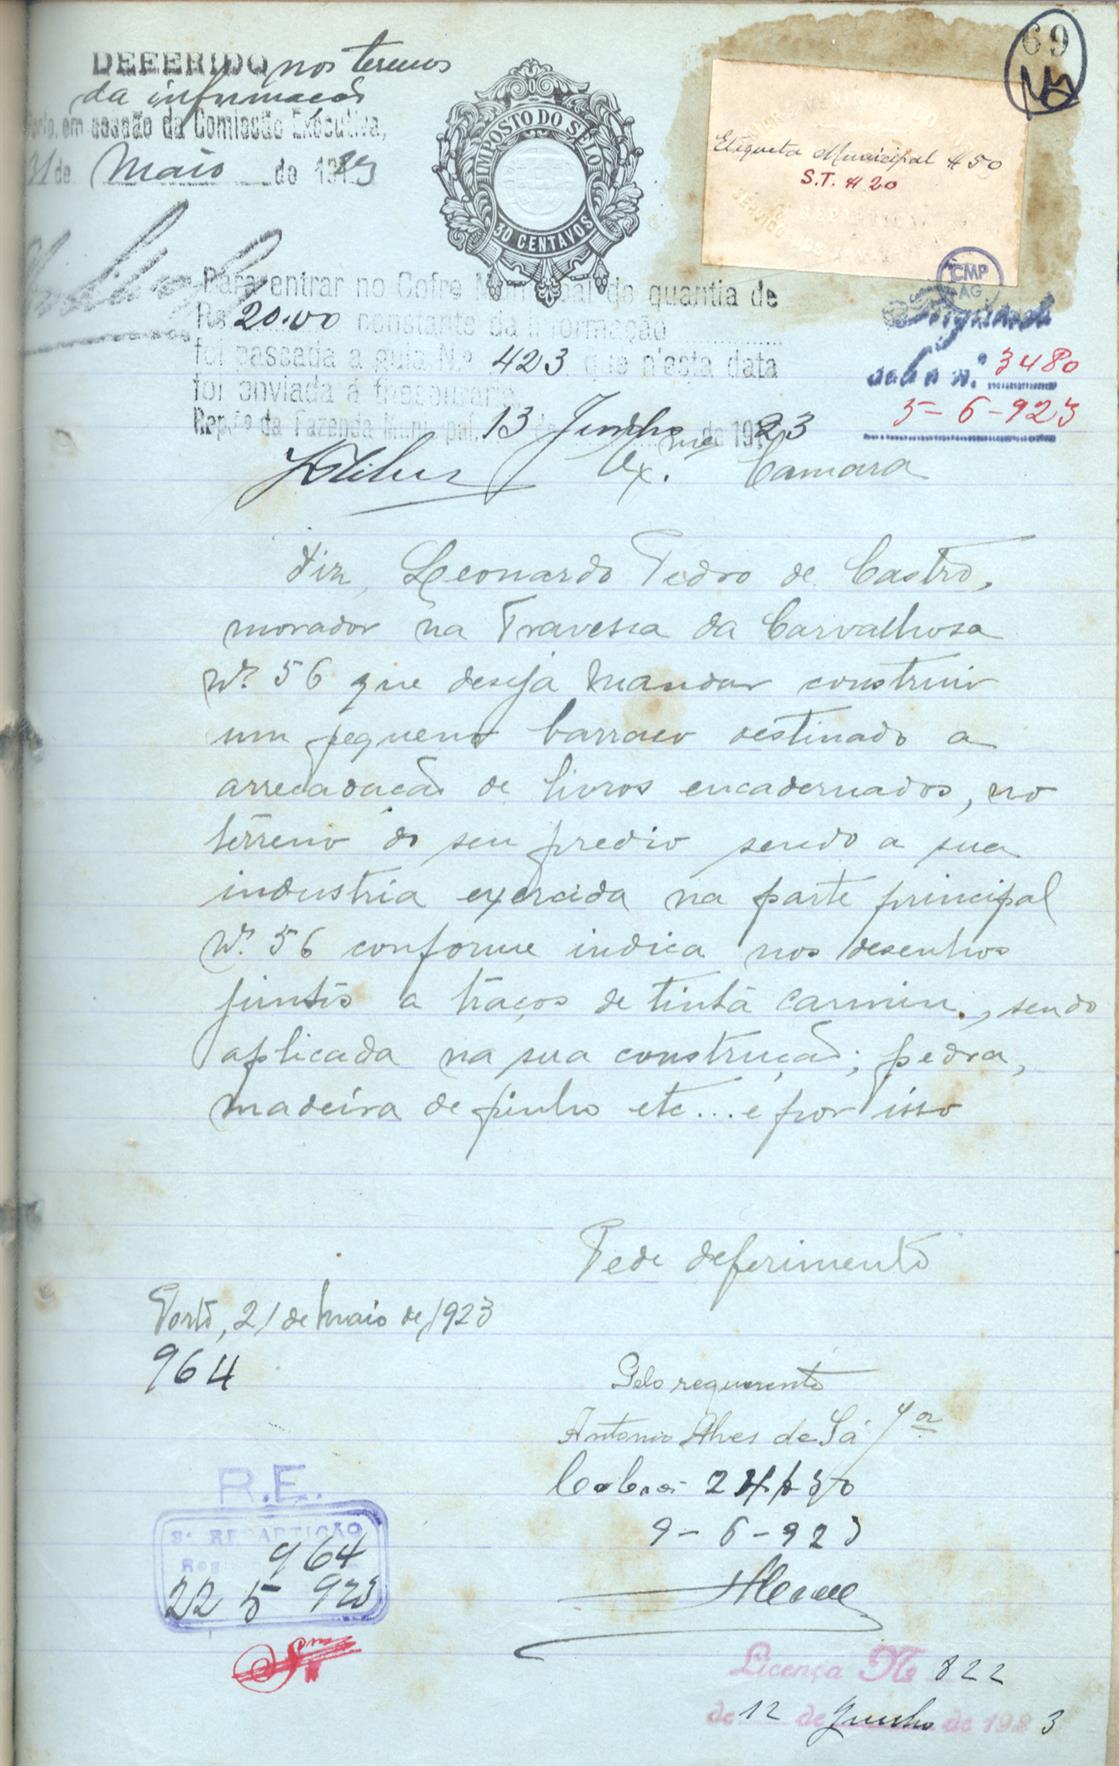 69
DEFERIDO nos termos
da informação
Porto, em sessão da Comissão Executiva,
31 de Maio de 1923
IMPOSTO DO SELO
30 CENTAVOS
Etiqueta Municipal $50
S.T. $20
CMP
AG
Para entrar no Cofre Municipal do quantia de
Rs 20.00 constante da informação
foi passada a guia N.º 423 que n'esta data
foi enviada á thesouraria.
Repão da Fazenda Municipal, 13 de Junho de 1923
sob o n.º 3480
5-6-923
Ex.ma Camara
Diz, Leonardo Pedro de Castro,
morador na Travessa da Carvalhosa
Nº 56 que deseja mandar construir
um pequeno barraco destinado a
arrecadacão de livros encadernados, no
terreno do seu predio sendo a sua
industria exercida na parte principal
Nº 56 conforme indica nos desenhos
juntos a traços de tinta carmin., sendo
aplicada na sua construção; pedra,
madeira de pinho etc... e por isso
Pede deferimento
Porto, 21 de Maio de 1923
964
Pelo requerente
Antonio Alves de Sá Jor
9-6-923
R.E.
3ª REPARTIÇÃO
964
22 5 923
Licença Nº 822
de 12 de Junho de 1923